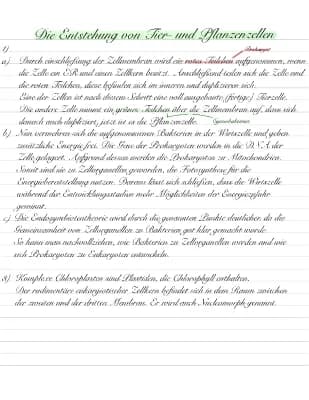 Die Entstehung von Tier- und Pflanzenzellen
1)
Prokaryot
a) Durch einschließung der Zellmembran wird ein rotes Teilchen aufgenommen, wenn
die Zelle ein ER und einen Zellkern besitzt. Anschließend teilen sich die Zelle und
die roten Teilchen, diese befinden sich im inneren und duplizieren sich.
Eine der Zellen ist nach diesem Schritt eine voll ausgebaute (fertige) Tierzelle.
Die andere Zelle nimmt ein grünes Teilchen über die Zellmembran auf, dass sich
danach auch dupliziert, jetzt ist es die Pflanzenzelle.
Cyanobakterium
b) Nun vermehren sich die aufgenommenen Bakterien in der Wirtszelle und geben
zusätzliche Energie frei. Die Gene der Prokaryoten werden in die DNA der
Zelle gelagert. Aufgrund dessen werden die Prokaryoten zu Mitochondrien.
Somit sind sie zu Zellorganellen geworden, die Fotosynthese für die
Energiebereitstellung nutzen. Daraus lässt sich schließen, dass die Wirtszelle
während der Entwicklungsstadien mehr Möglichkeiten der Energiezufuhr
gewinnt.
c) Die Endosymbiontentheorie wird durch die genannten Punkte deutlicher, da die
Gemeinsamkeit von Zellorganellen zu Bakterien gut klar gemacht wurde.
So kann man nachvollziehen, wie Bakterien zu Zellorganellen werden und wie
sich Prokaryoten zu Eukaryoten entwickeln.
Komplexe Chloroplasten sind Plastiden, die Chlorophyll enthalten.
Der rudimentäre eukaryotischer Zellkern befindet sich in dem Raum zwischen
der zweiten und der dritten Membran. Er wird auch Nucleomorph genannt.